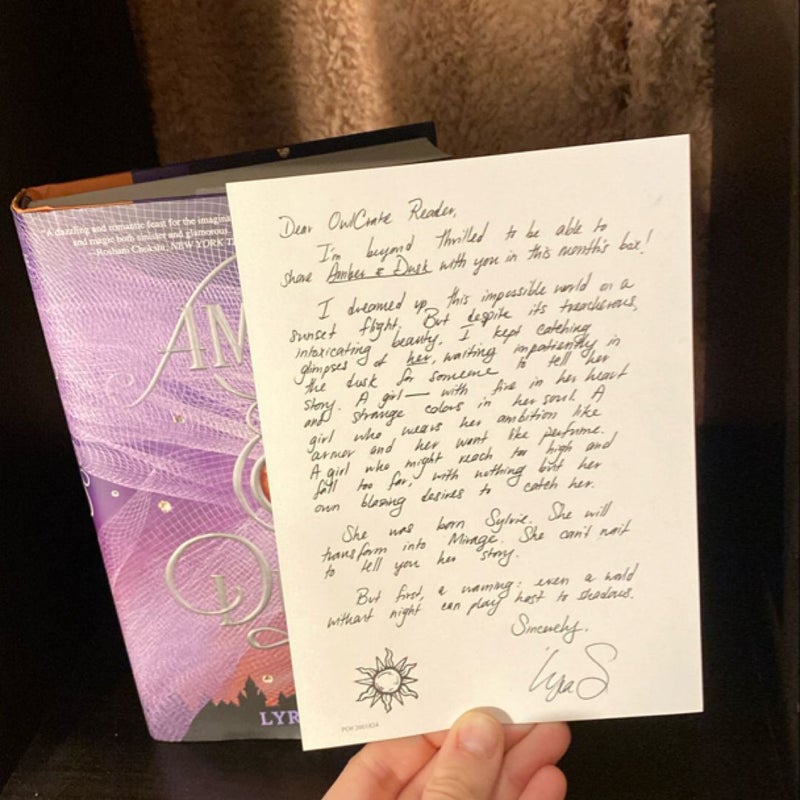 "A dazzling and romantic feast for the imagina
and magic both sinister and glamorous.
—Roshani Chokshi, NEW YORK T
AM
D
LYR
Dear OwlCrate Reader,
I'm beyond thrilled to be able to
share Amber & Dusk with you in this month's box!
I dreamed up this impossible world on a
sunset flight. But despite its treacherous,
intoxicating beauty, I kept catching
glimpses of her, waiting impatiently in
the dusk for someone to tell her
story. A girl — with fire in her heart
and strange colors in her soul. A
girl who wears her ambition like
armor and her want like perfume.
A girl who might reach too high and
fall too far, with nothing but her
own blazing desires to catch her.
She was born Sylvie. She will
transform into Mirage. She can't wait
to tell you her story.
But first, a warning: even a world
without night can play host to shadows.
Sincerely,
Lyra S